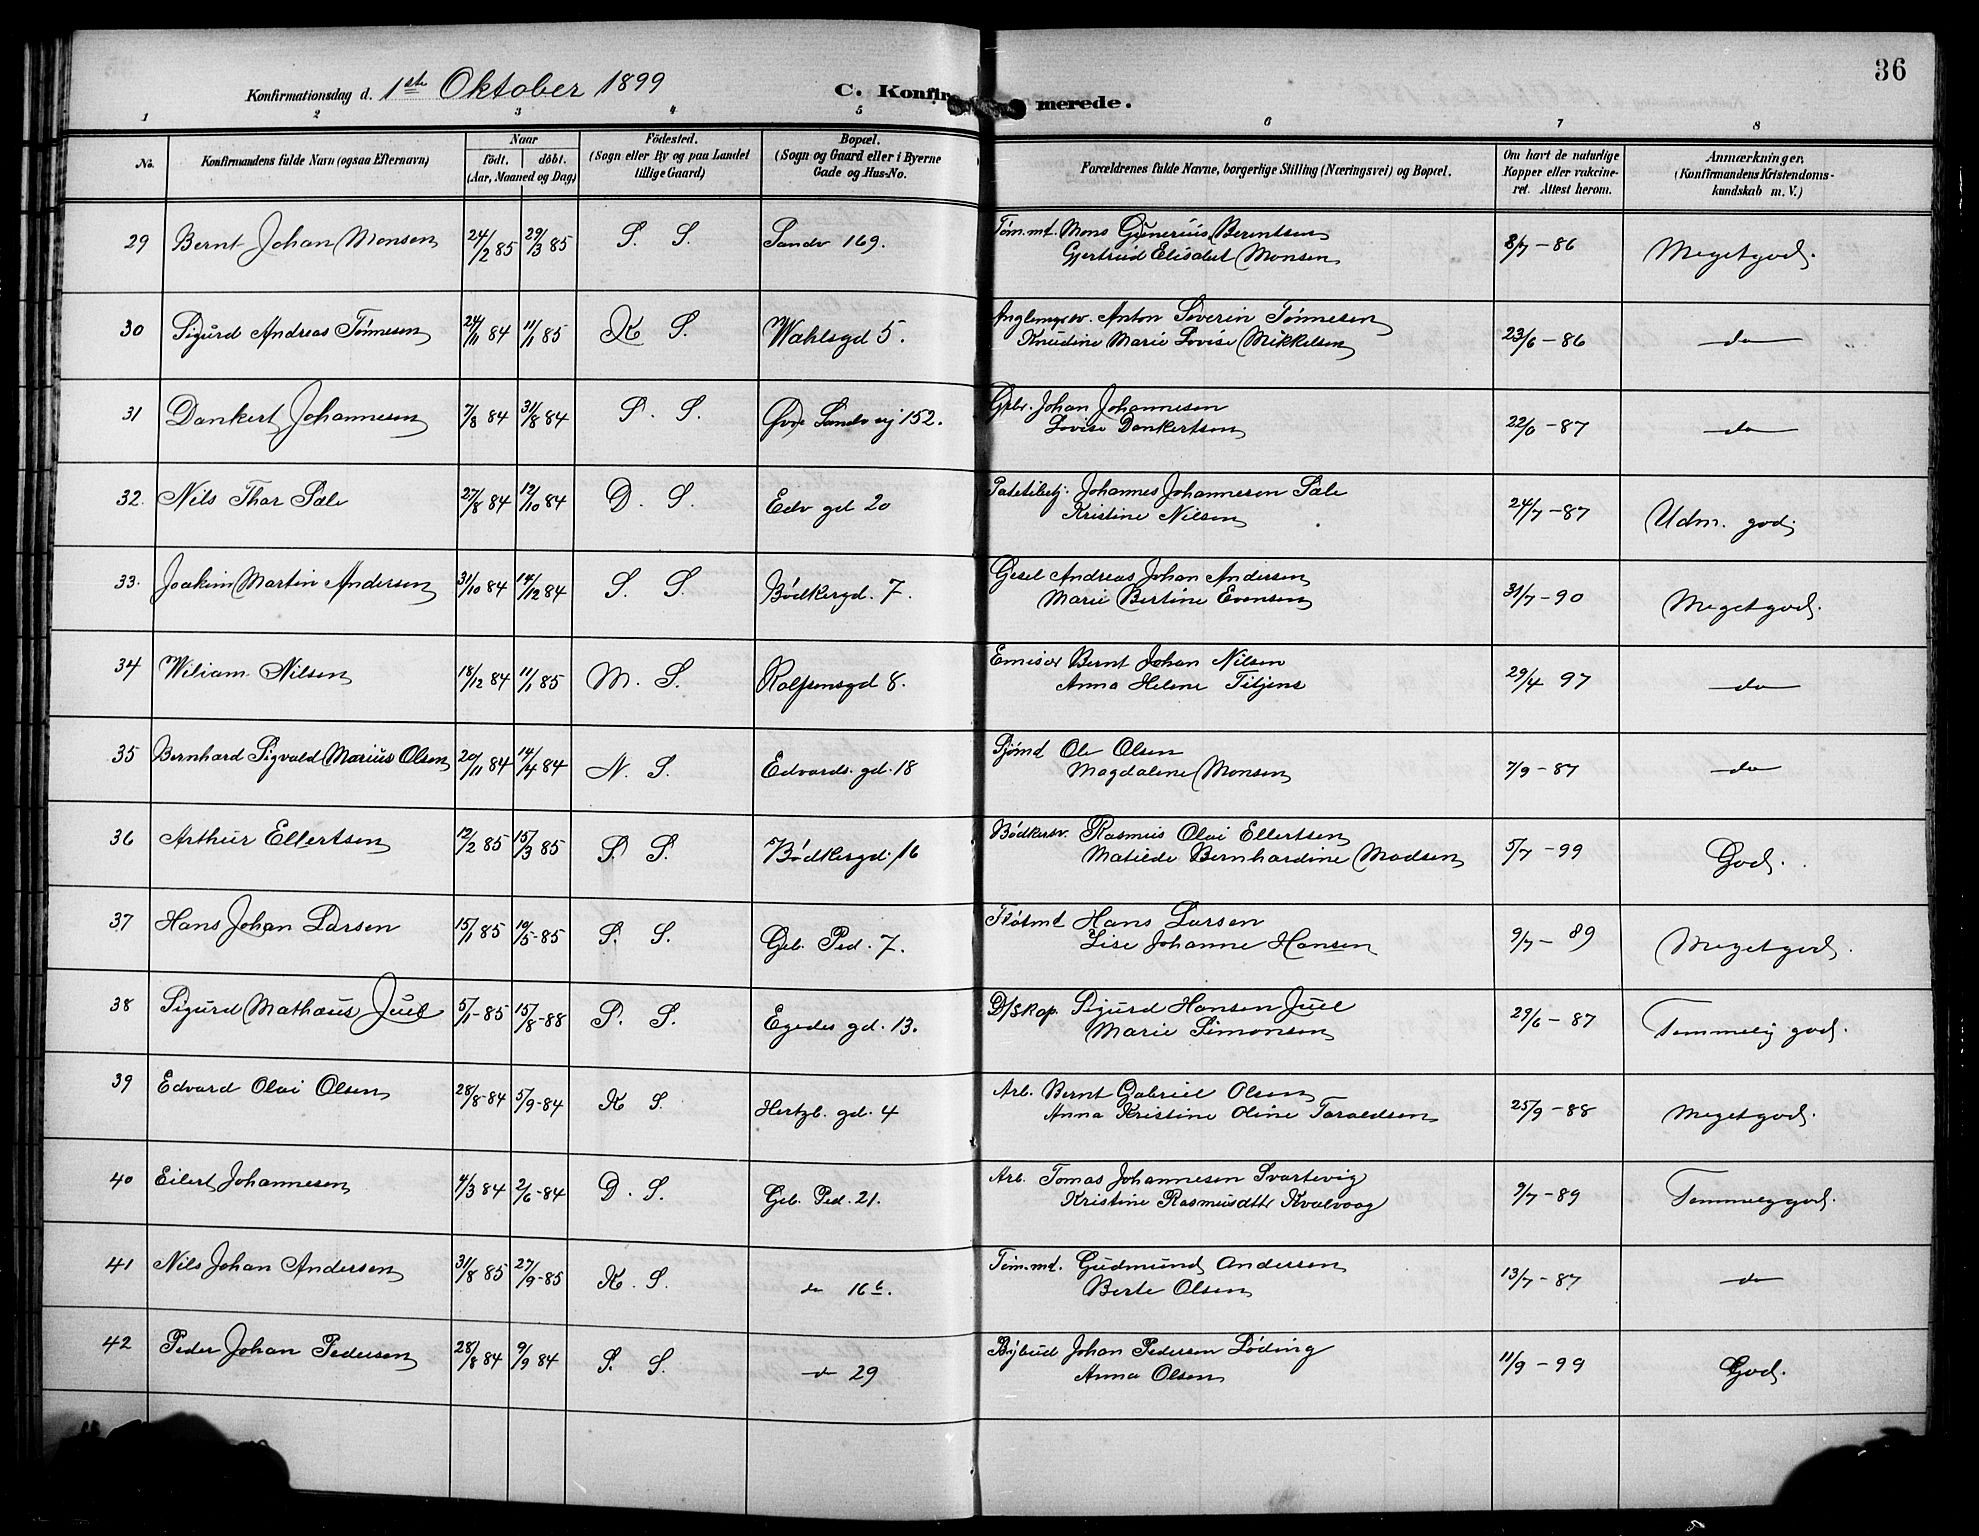 36
Konfirmationsdag d. 1ste Oktober 1899 C. Konfirmerede.
1 2 3 4 5 6 7 8
No. Konfirmandens fulde Navn (ogsaa Efternavn) Naar født. døbt. (Aar, Maaned og Dag) Födested. (Sogn eller By og paa Landet tillige Gaard) Bopæl. (Sogn og Gaard eller i Byerne Gade og Hus-No. Forældrenes fulde Navne, borgerlige Stilling (Næringsvei) og Bopæl. Om havt de naturlige Kopper eller vakcineret. Attest herom. Anmærkninger. (Konfirmandens Kristendomskundskab m. V.)
29 Bernt Johan Monsen 24/2 85 29/3 85 S. S. Sandv 169. Tøm.md. Mons Gunerius Berentsen 8/7 - 86 Megetgod.
Gjertrud Elisabet Monsen
30 Sigurd Andreas Tönnesen 24/11 84 11/1 85 K S. Wahlsgd 5. Anton Severin Tönnesen 23/6 - 86 do
Knudine Marie Lovise Mikkelsen
31 Dankert Johannesen 7/8 84 31/8 84 S. S. Øvr Sandvej 152. Johan Johannesen 22/6 - 87 do
Lovise Dankertsen
32. Nils Thor Sæle 27/8 84 12/10 84 D. S. Edv gd 20 Johannes Johannesen Sæle 24/7 - 87 Udm. god.
Kristine Nilsen
33. Joakim Martin Andersen 31/10 84 14/12 84 S. S. Bödkergd. 7. Gesel Andreas Johan Andersen 31/7 - 90 Megetgod.
Marie Bertine Evensen
34 Wiliam Nilsen 18/12 84 11/1 85 M. S. Rolfsensgd 8. Emisær Bernt Johan Nilsen 29/4 97 do
Anna Helene Titjens
35 Bernhard Sigvald Marius Olsen 20/11 84 14/4 84 N. S. Edvards. gd. 18 Sjömd Ole Olsen 7/9 - 87 do
Magdalene Monsen
36 Arthur Ellertsen 12/2 85 15/3 85 S. S. Bödkergd. 16 Bödkersv. Rasmus Olai Ellertsen 5/7 - 99 God.
Matilde Bernhardine Madsen
37 Hans Johan Larsen 15/1 85 10/5 - 85 S. S. Geb. Ped. 7. Fløtmd Hans Larsen 9/7 - 89 Megetgod.
Lise Johanne Hansen
38 Sigurd Mathæus Juel 5/1 - 85 15/8 - 88 S. S. Egedes gd. 13. D/Skap. Sigurd Hansen Juel 29/6 - 87 Temmelig god.
Marie Simonsen
39 Edvard Olai Olsen 28/8 - 84 5/9 - 84 K S. Hertzb. gd. 4 Arb. Bernt Gabriel Olsen 25/9 - 88 Megetgod.
Anna Kristine Oline Taraldsen
40 Eilert Johannesen 4/3 84 2/6 - 84 D. S. Geb. Ped. 21. Arb. Tomas Johannesen Svartevig 9/7 - 89 Temmeliggod.
Kristine Rasmusdtr Kvalvaag
41 Nils Johan Andersen 31/8 85 27/9 - 85 K. S. do 16b. Tøm.md. Gudmund Andersen 13/7 - 87 do
Berte Olsen
42 Peder Johan Pedersen 28/8 84 9/9 84 S. S. do 29 Bybud Johan Pedersen Löding 11/9 - 99 God.
Anna Olsen